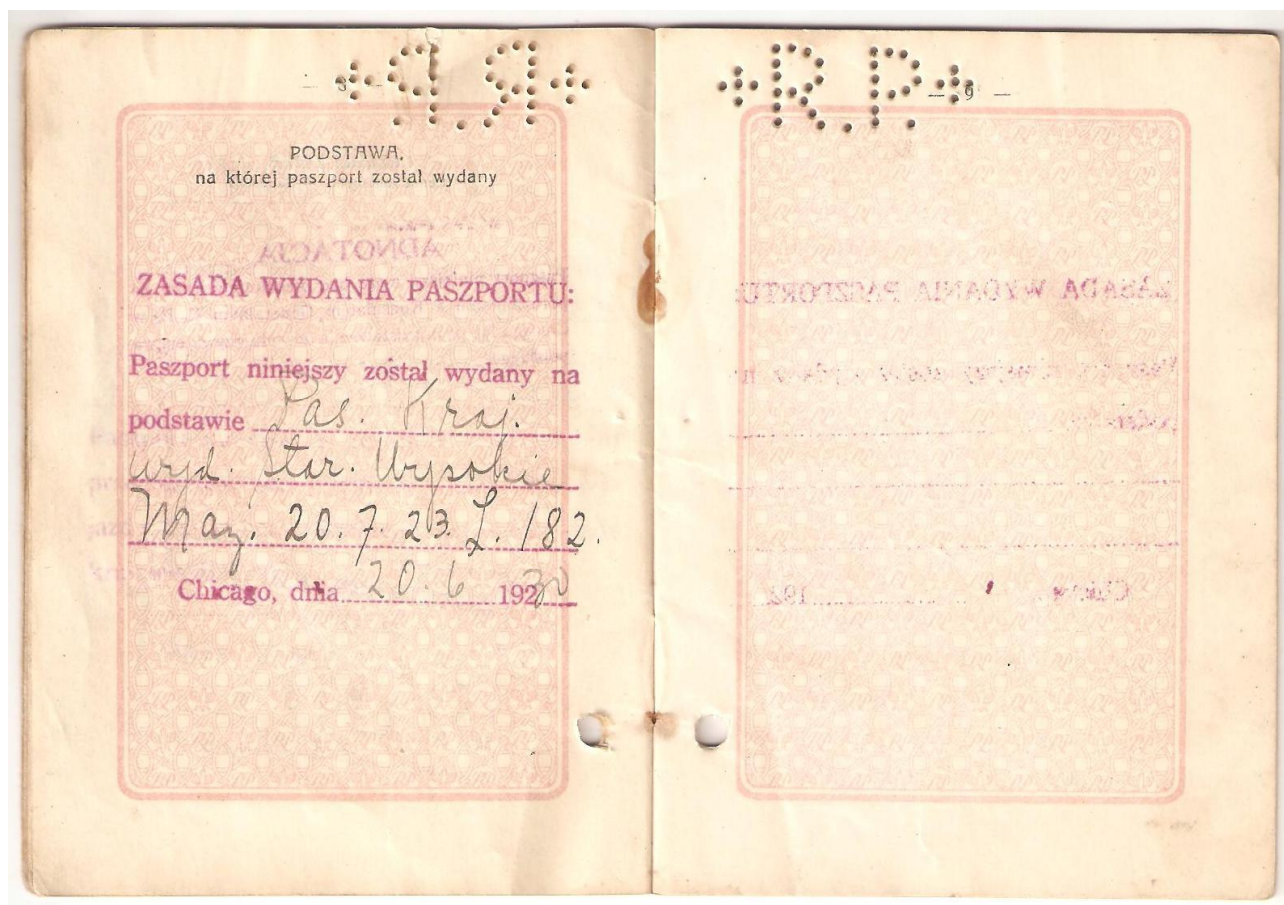 — 8 —
PODSTAWA,
na której paszport został wydany
ADNOTACJA
ZASADA WYDANIA PASZPORTU:
Paszport niniejszy został wydany na
podstawie Pas. Kraj.
wyd. Star. Wysokie
Maz. 20.7.23. L. 182.
Chicago, dnia 20.6 1930
+R.P+
— 9 —